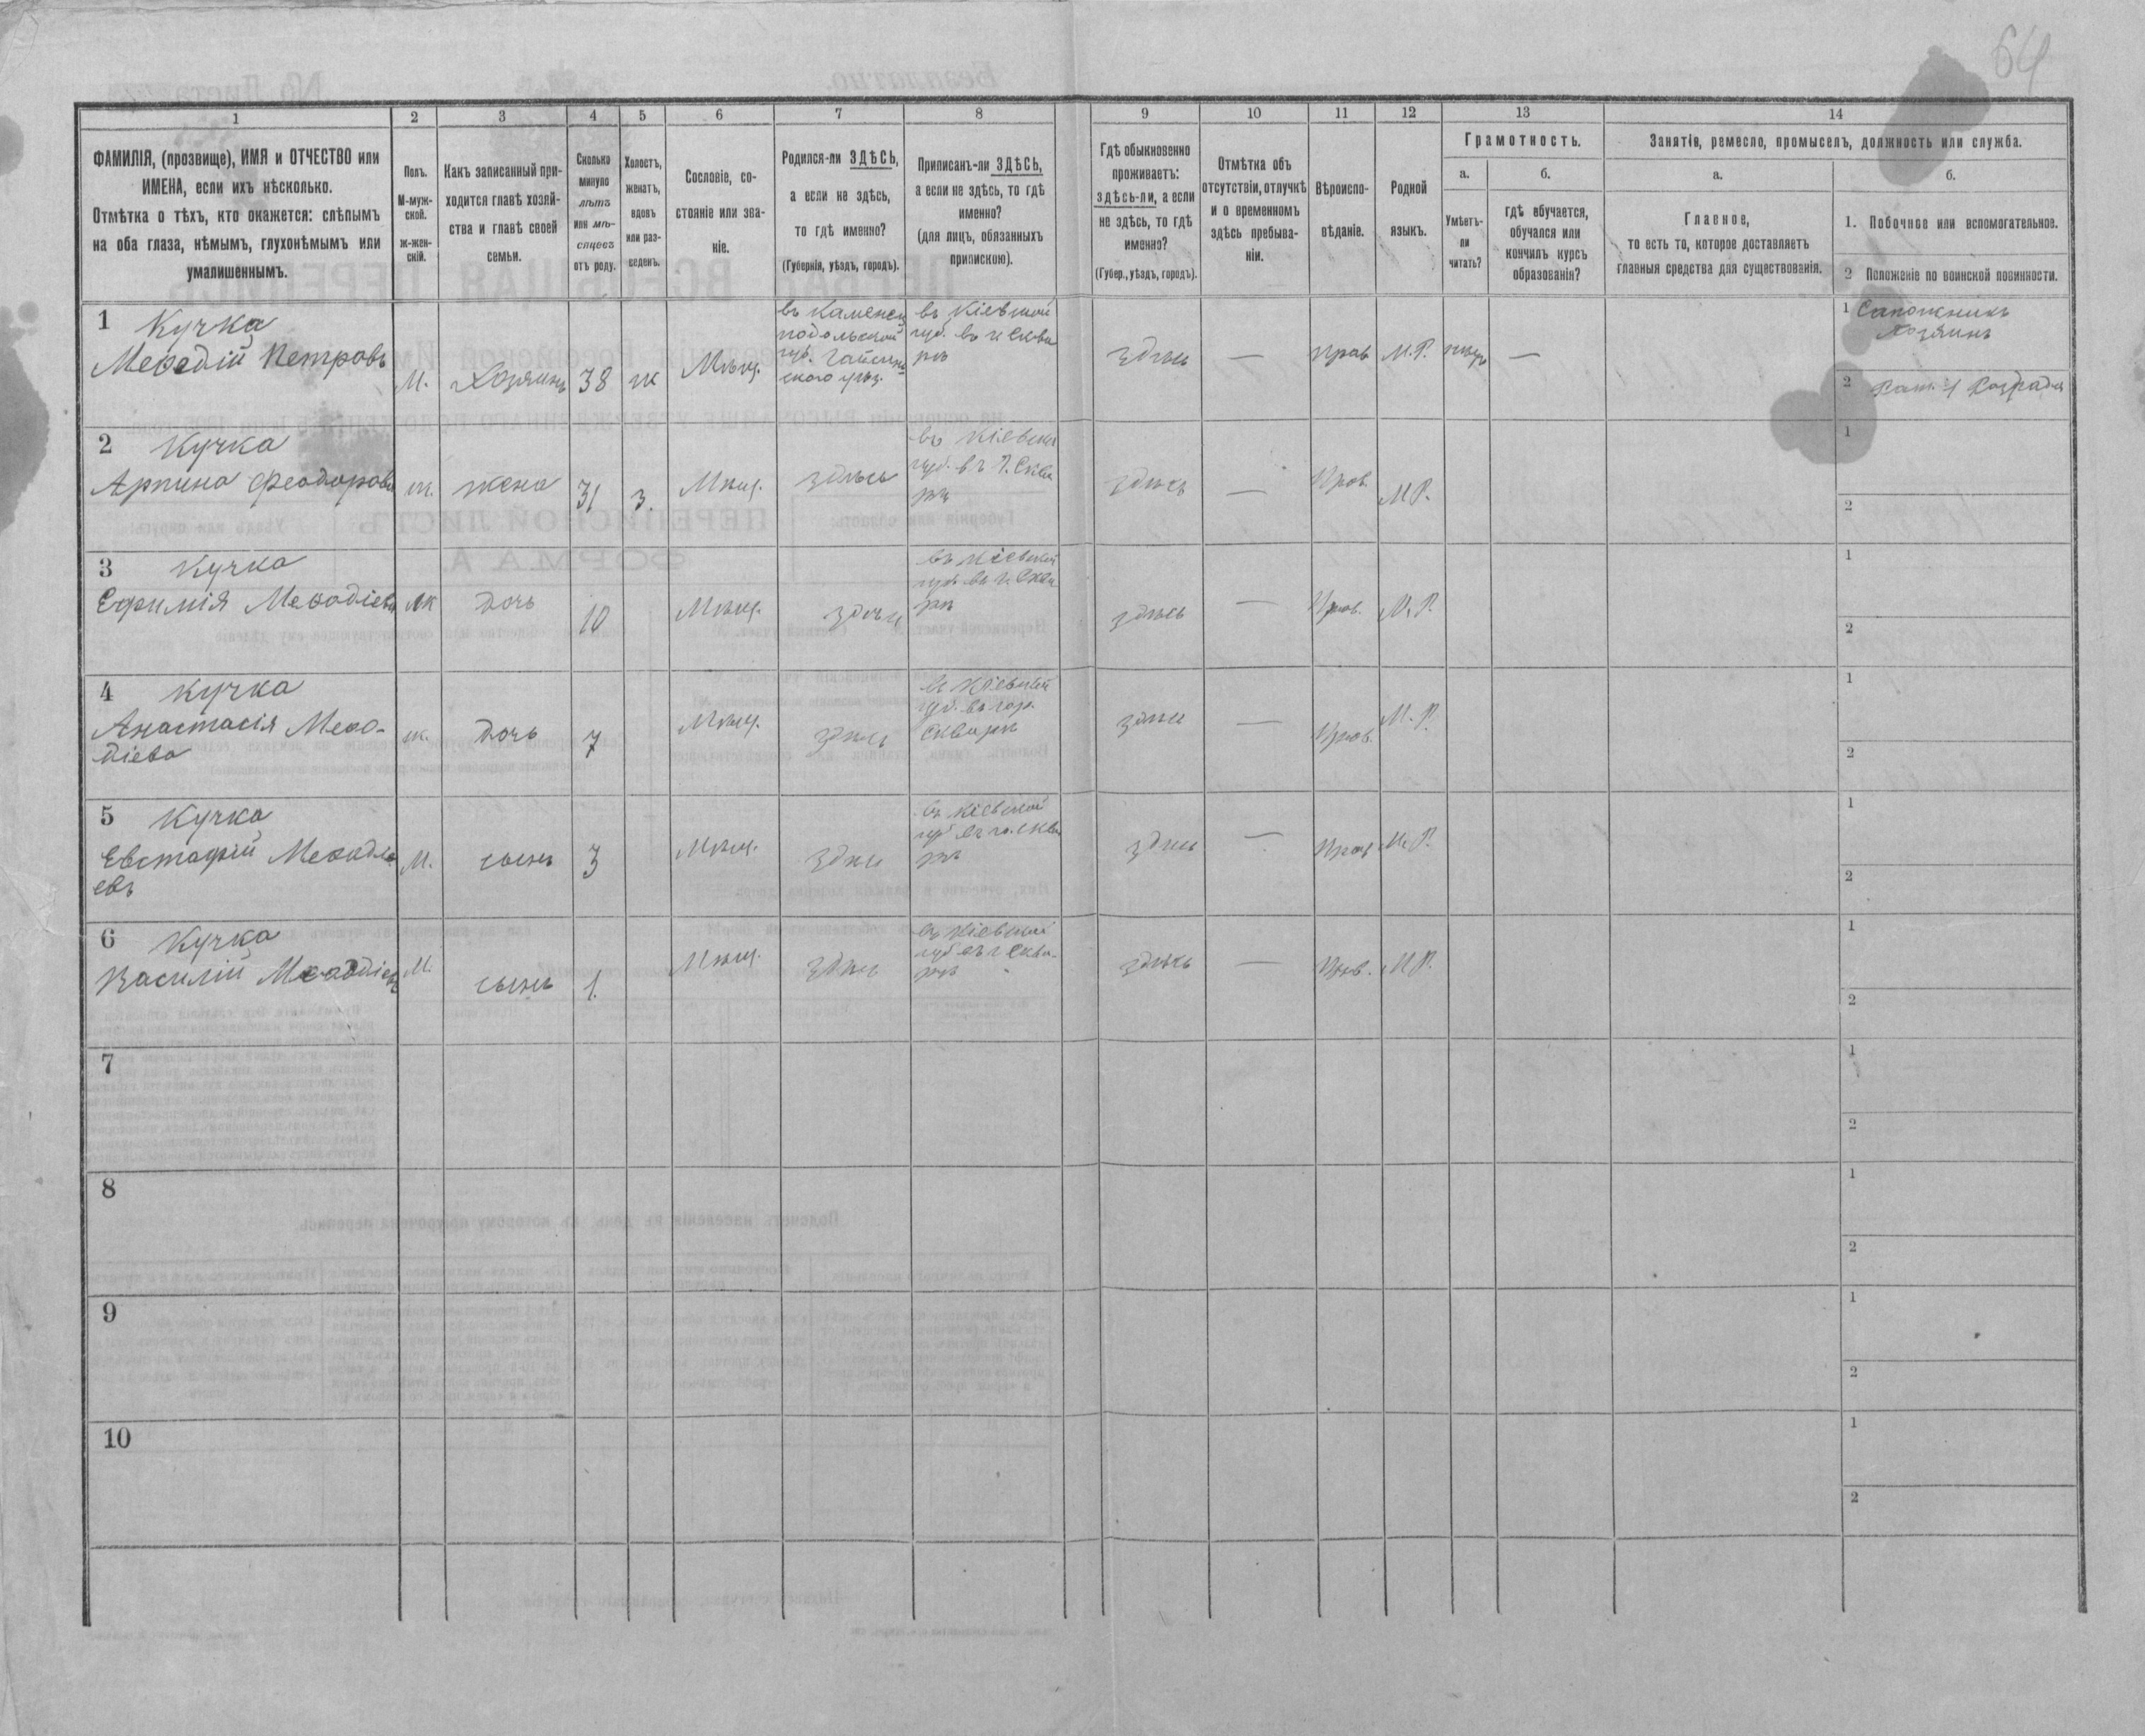 64
1
2
3
4
5
6
7
8
9
10
11
12
13
14
ФАМИЛІЯ, (прозвище), ИМЯ и ОТЧЕСТВО или
ИМЕНА, если ихъ нѣсколько.
Отмѣтка о тѣхъ, кто окажется: слѣпымъ
на оба глаза, нѣмымъ, глухонѣмымъ или
умалишеннымъ.
Полъ.
М-муж-
ской.
ж-жен-
скій.
Какъ записанный при-
ходится главѣ хозяй-
ства и главѣ своей
семьи.
Сколько
минуло
лѣтъ
или мѣ-
сяцевъ
отъ роду.
Холостъ,
женатъ,
вдовъ
или раз-
веденъ.
Сословіе, со-
стояніе или зва-
ніе.
Родился-ли ЗДѢСЬ,
а если не здѣсь,
то гдѣ именно?
(Губернія, уѣздъ, городъ).
Приписанъ-ли ЗДѢСЬ,
а если не здѣсь, то гдѣ
именно?
(для лицъ, обязанныхъ
припискою).
Гдѣ обыкновенно
проживаетъ:
здѣсь-ли, а если
не здѣсь, то гдѣ
именно?
(Губер., уѣздъ, городъ).
Отмѣтка объ
отсутствіи, отлучкѣ
и о временномъ
здѣсь пребыва-
ніи.
Вѣроиспо-
вѣданіе.
Родной
языкъ.
Грамотность.
а.
Умѣетъ-
ли
читать?
б.
гдѣ обучается,
обучался или
кончилъ курсъ
образованія?
Занятіе, ремесло, промыселъ, должность или служба.
а.
Главное,
то есть то, которое доставляетъ
главныя средства для существованія.
б.
1. Побочное или вспомогательное.
2 Положеніе по воинской повинности.
1 Кучка
Меѳодій Петровъ
М.
Хозяинъ
38
ж
Мѣщ.
въ Каменец
подольской
губ. Гайсин-
ского уѣз.
въ Кіевской
губ. въ г Сквы
рѣ
здѣсь
—
прав
М.Р.
—
1 Сапожникъ
Хозяинъ
2 Рат. 1 Разряда
2 Кучка
Арпина Феодорова
ж.
жена
31
з.
Мѣщ.
здѣсь
въ Кіевской
губ. въ г. Сквы
рѣ
здѣсь
—
Прав.
М Р.
1
2
3 Кучка
Ефимія Меѳодіева
ж
дочь
10
Мѣщ.
здѣсь
въ Кіевской
губ въ г Сквы
рѣ
здѣсь
—
Прав.
М. Р.
1
2
4 Кучка
Анастасія Меѳо-
діева
ж.
дочь
7
Мѣщ.
здѣсь
въ Кіевской
губ. въ гор.
Сквырѣ
здѣсь
—
Прав.
М. Р.
1
2
5 Кучка
Евстафій Меѳоді
евъ
М.
сынъ
3
Мѣщ.
здѣсь
въ Кіевской
губ въ го. Сквы
рѣ
здѣсь
—
Прав
М. Р.
1
2
6 Кучка
Василій Меѳодіевъ
М.
сынъ
1.
Мѣщ.
здѣсь
въ Кіевской
губ въ г Сквы-
рѣ
здѣсь
—
Прав.
М Р.
1
2
7
1
2
8
1
2
9
1
2
10
1
2